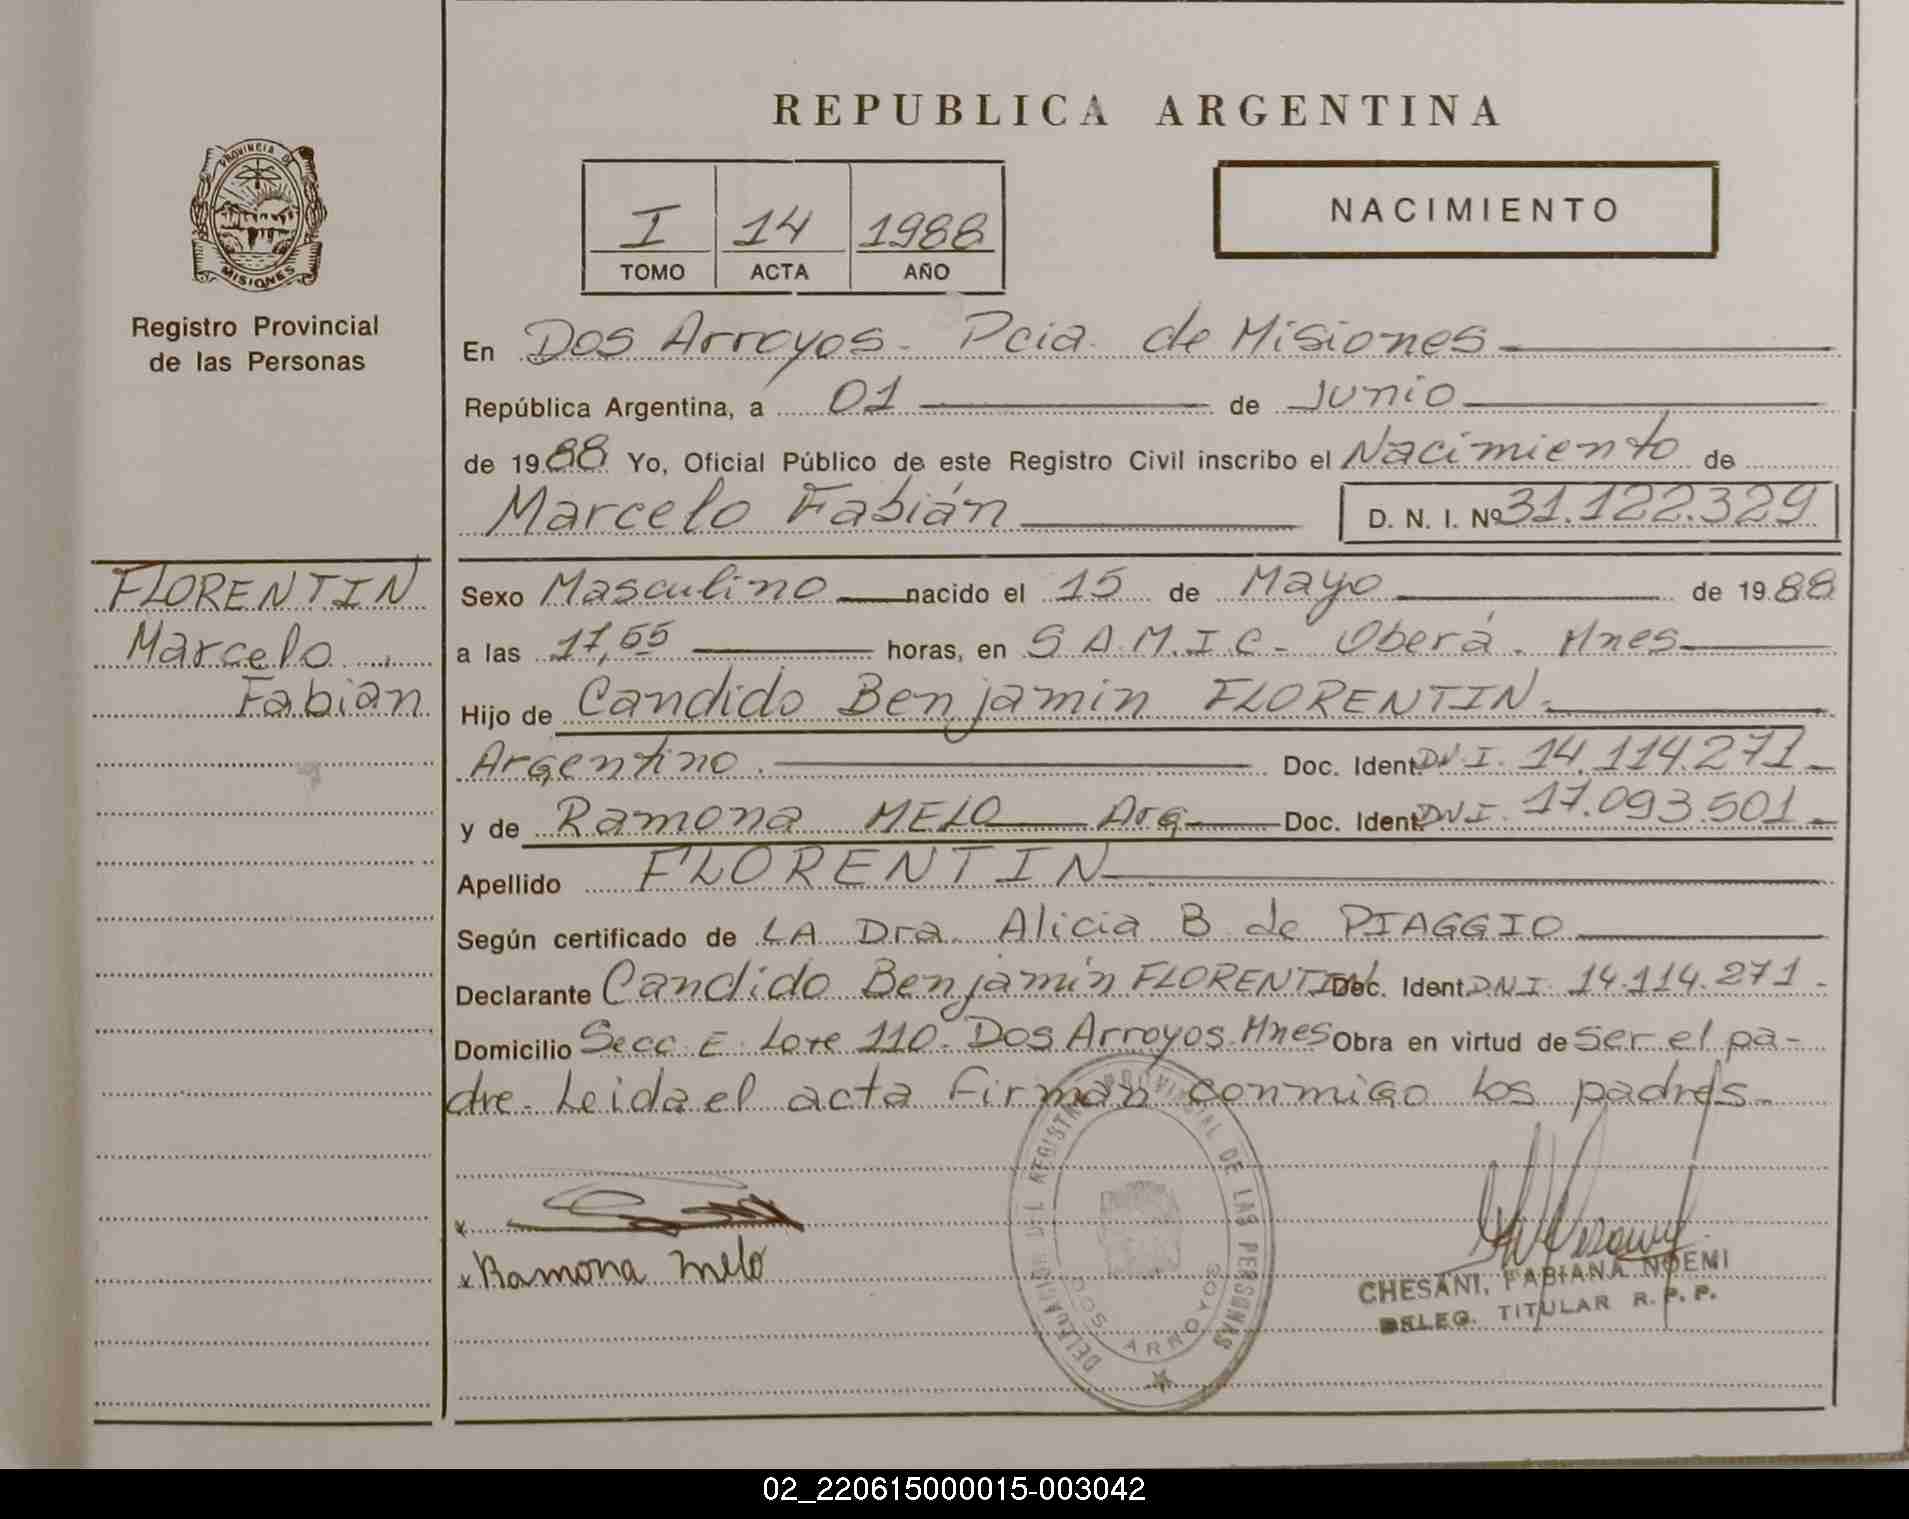 REPUBLICA ARGENTINA
PROVINCIA DE
MISIONES
Registro Provincial
de las Personas
I 14 1988
TOMO ACTA AÑO
NACIMIENTO
En Dos Arroyos - Pcia. de Misiones
República Argentina, a 01 de Junio
de 1988 Yo, Oficial Público de este Registro Civil inscribo el Nacimiento de
Marcelo Fabián D. N. I. Nº 31.122.329
FLORENTIN
Marcelo
Fabian
Sexo Masculino nacido el 15 de Mayo de 1988
a las 17,55 horas, en S.A.M.I.C. - Oberá. Mnes
Hijo de Candido Benjamin FLORENTIN.
Argentino. Doc. Ident. DNI. 14.114.271
y de Ramona MELO Arg Doc. Ident. DNI. 17.093.501
Apellido FLORENTIN
Según certificado de LA Dra. Alicia B de PIAGGIO
Declarante Candido Benjamín FLORENTIN Doc. Ident. DNI. 14.114.271 -
Domicilio Secc E Lote 110 - Dos Arroyos. Mnes Obra en virtud de ser el pa-
dre - Leida el acta firman conmigo los padres -
x
x Ramona Melo
DELEGACION DEL REGISTRO PROVINCIAL DE LAS PERSONAS
DOS ARROYOS
CHESANI, FABIANA NOEMI
DELEG. TITULAR R. P. P.
02_220615000015-003042